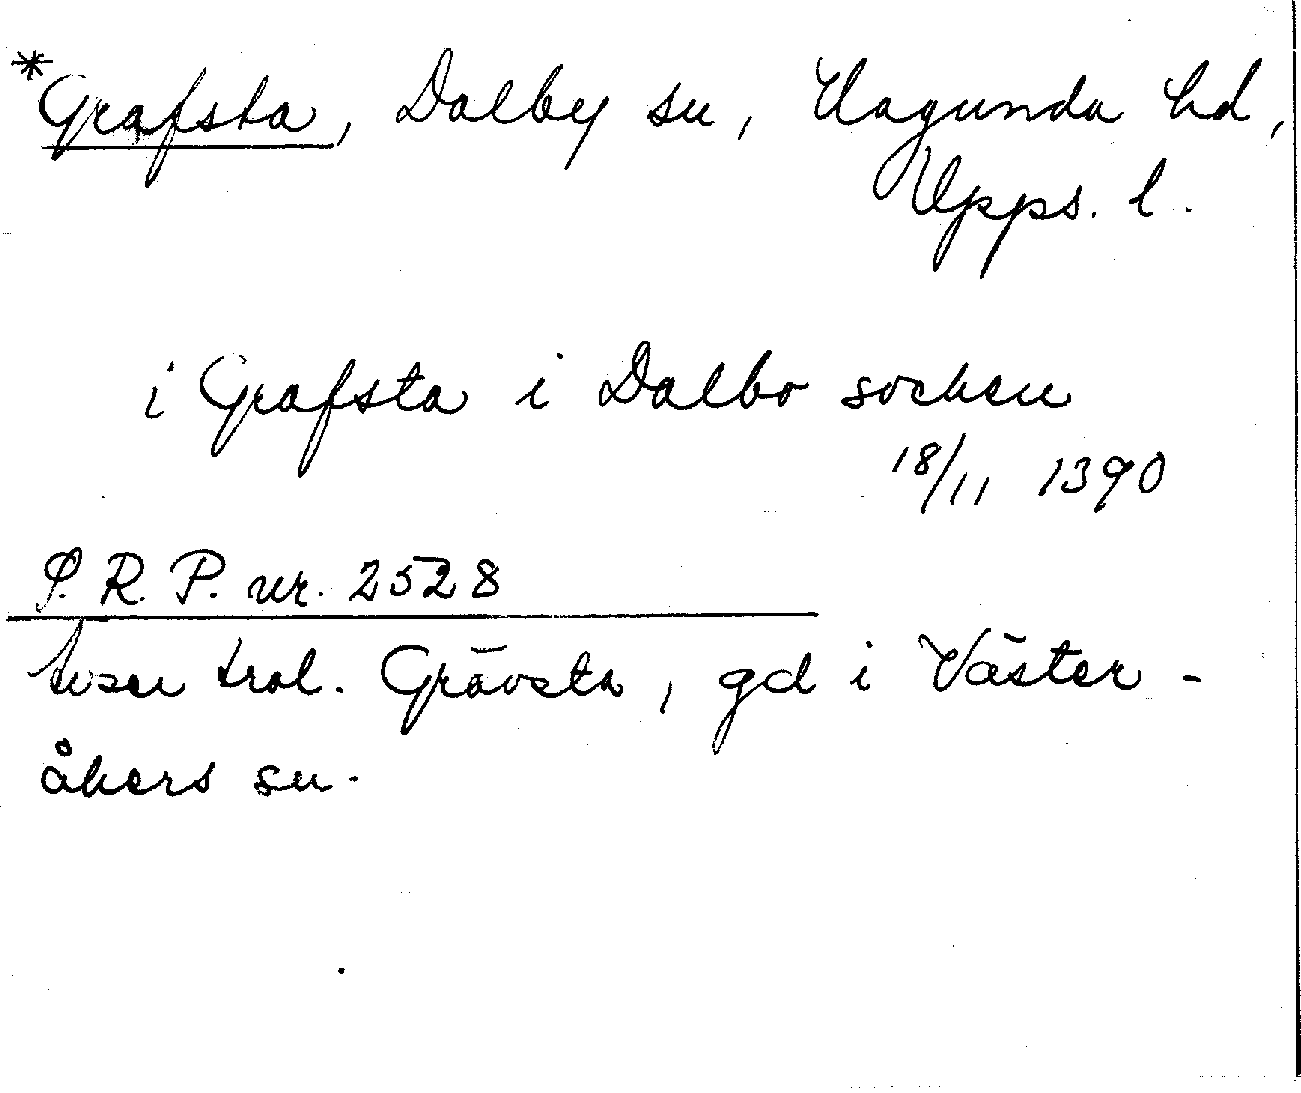 *Grafsta, Dalby sn, Hagunda hd,
Upps. l.
i Grafsta i Dalbo socken
18/11 1390
S.R.P. nr. 2528
Avser trol. Grävsta, gd i Väster-
åkers sn.